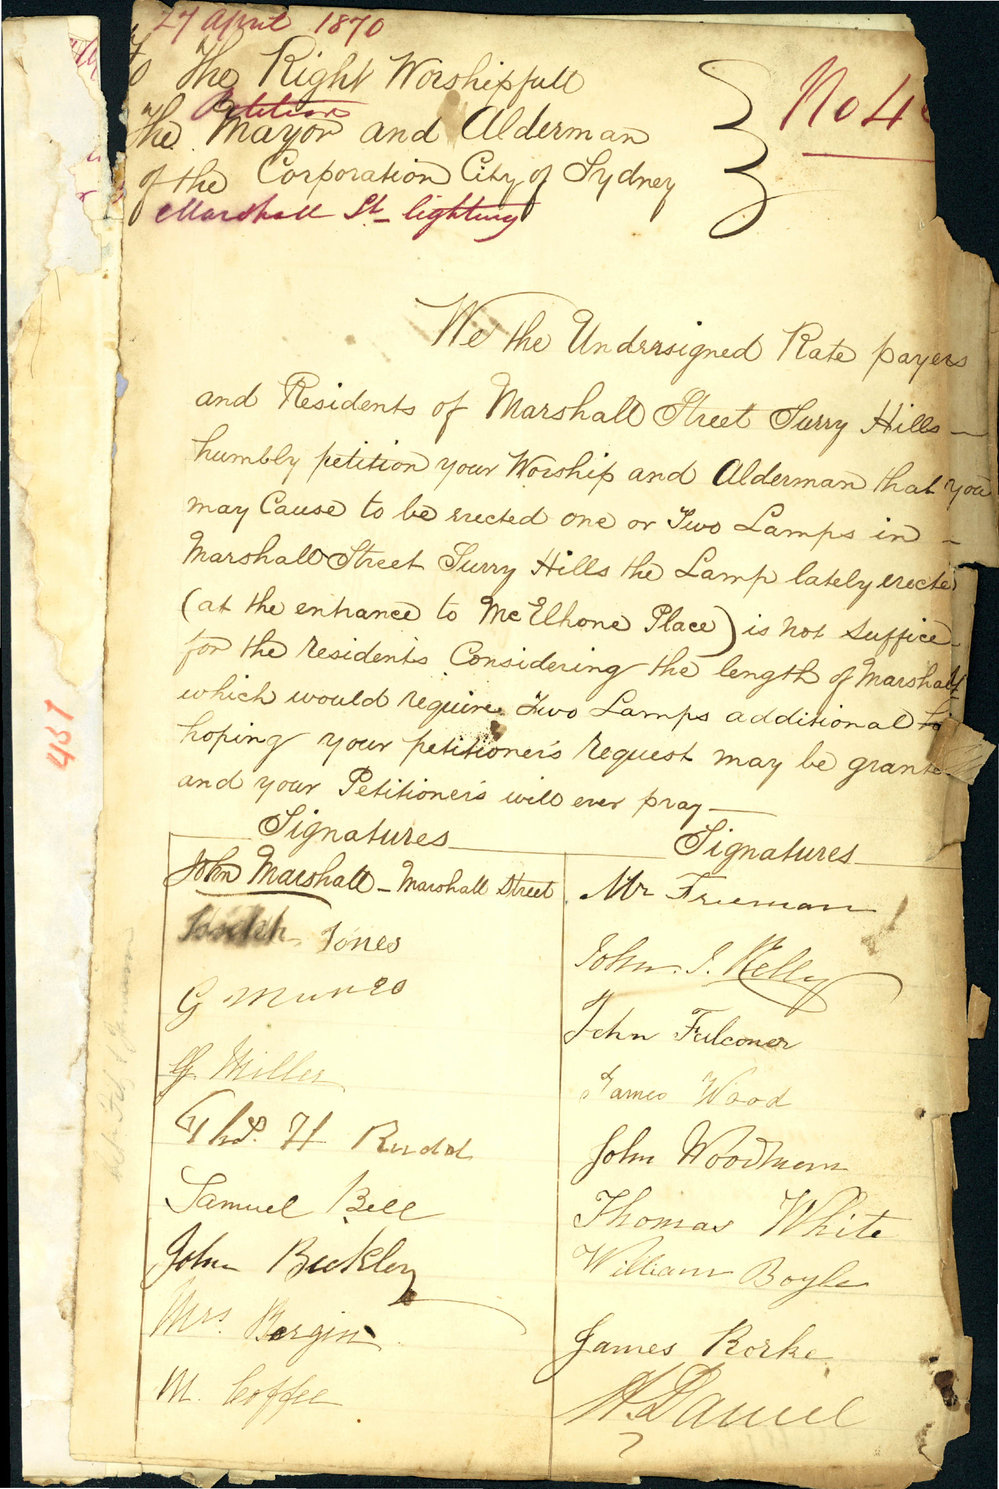 27 April 1870
To The Right Worshipfull
Petition
No 4
the Mayor and Alderman
of the Corporation City of Sydney
Marshall St lighting
We the Undersigned Rate payers
and Residents of Marshall Street Surry Hills —
humbly petition your Worship and Alderman that you
may Cause to be erected one or Two Lamps in –
Marshall Street Surry Hills the Lamp lately erecte
(at the entrance to McElhone Place) is not suffice
for the residents Considering the length of Marshall
which would require Two Lamps additional to
hoping your petitioners request may be grante
and your Petitioners will ever pray —
Signatures
Signatures
John Marshall – Marshall Street
Mr Frieman
Joseph Jones
John. J. Kelly
G Munro
John Fulconer
G. Miller
James Wood
Thos. H Rudd
John Woodman
Samuel Bell
Thomas White
John Buckley
William Boyle
Mrs. Bergin
James Rorke
M. Coffee
H. Daniel
451